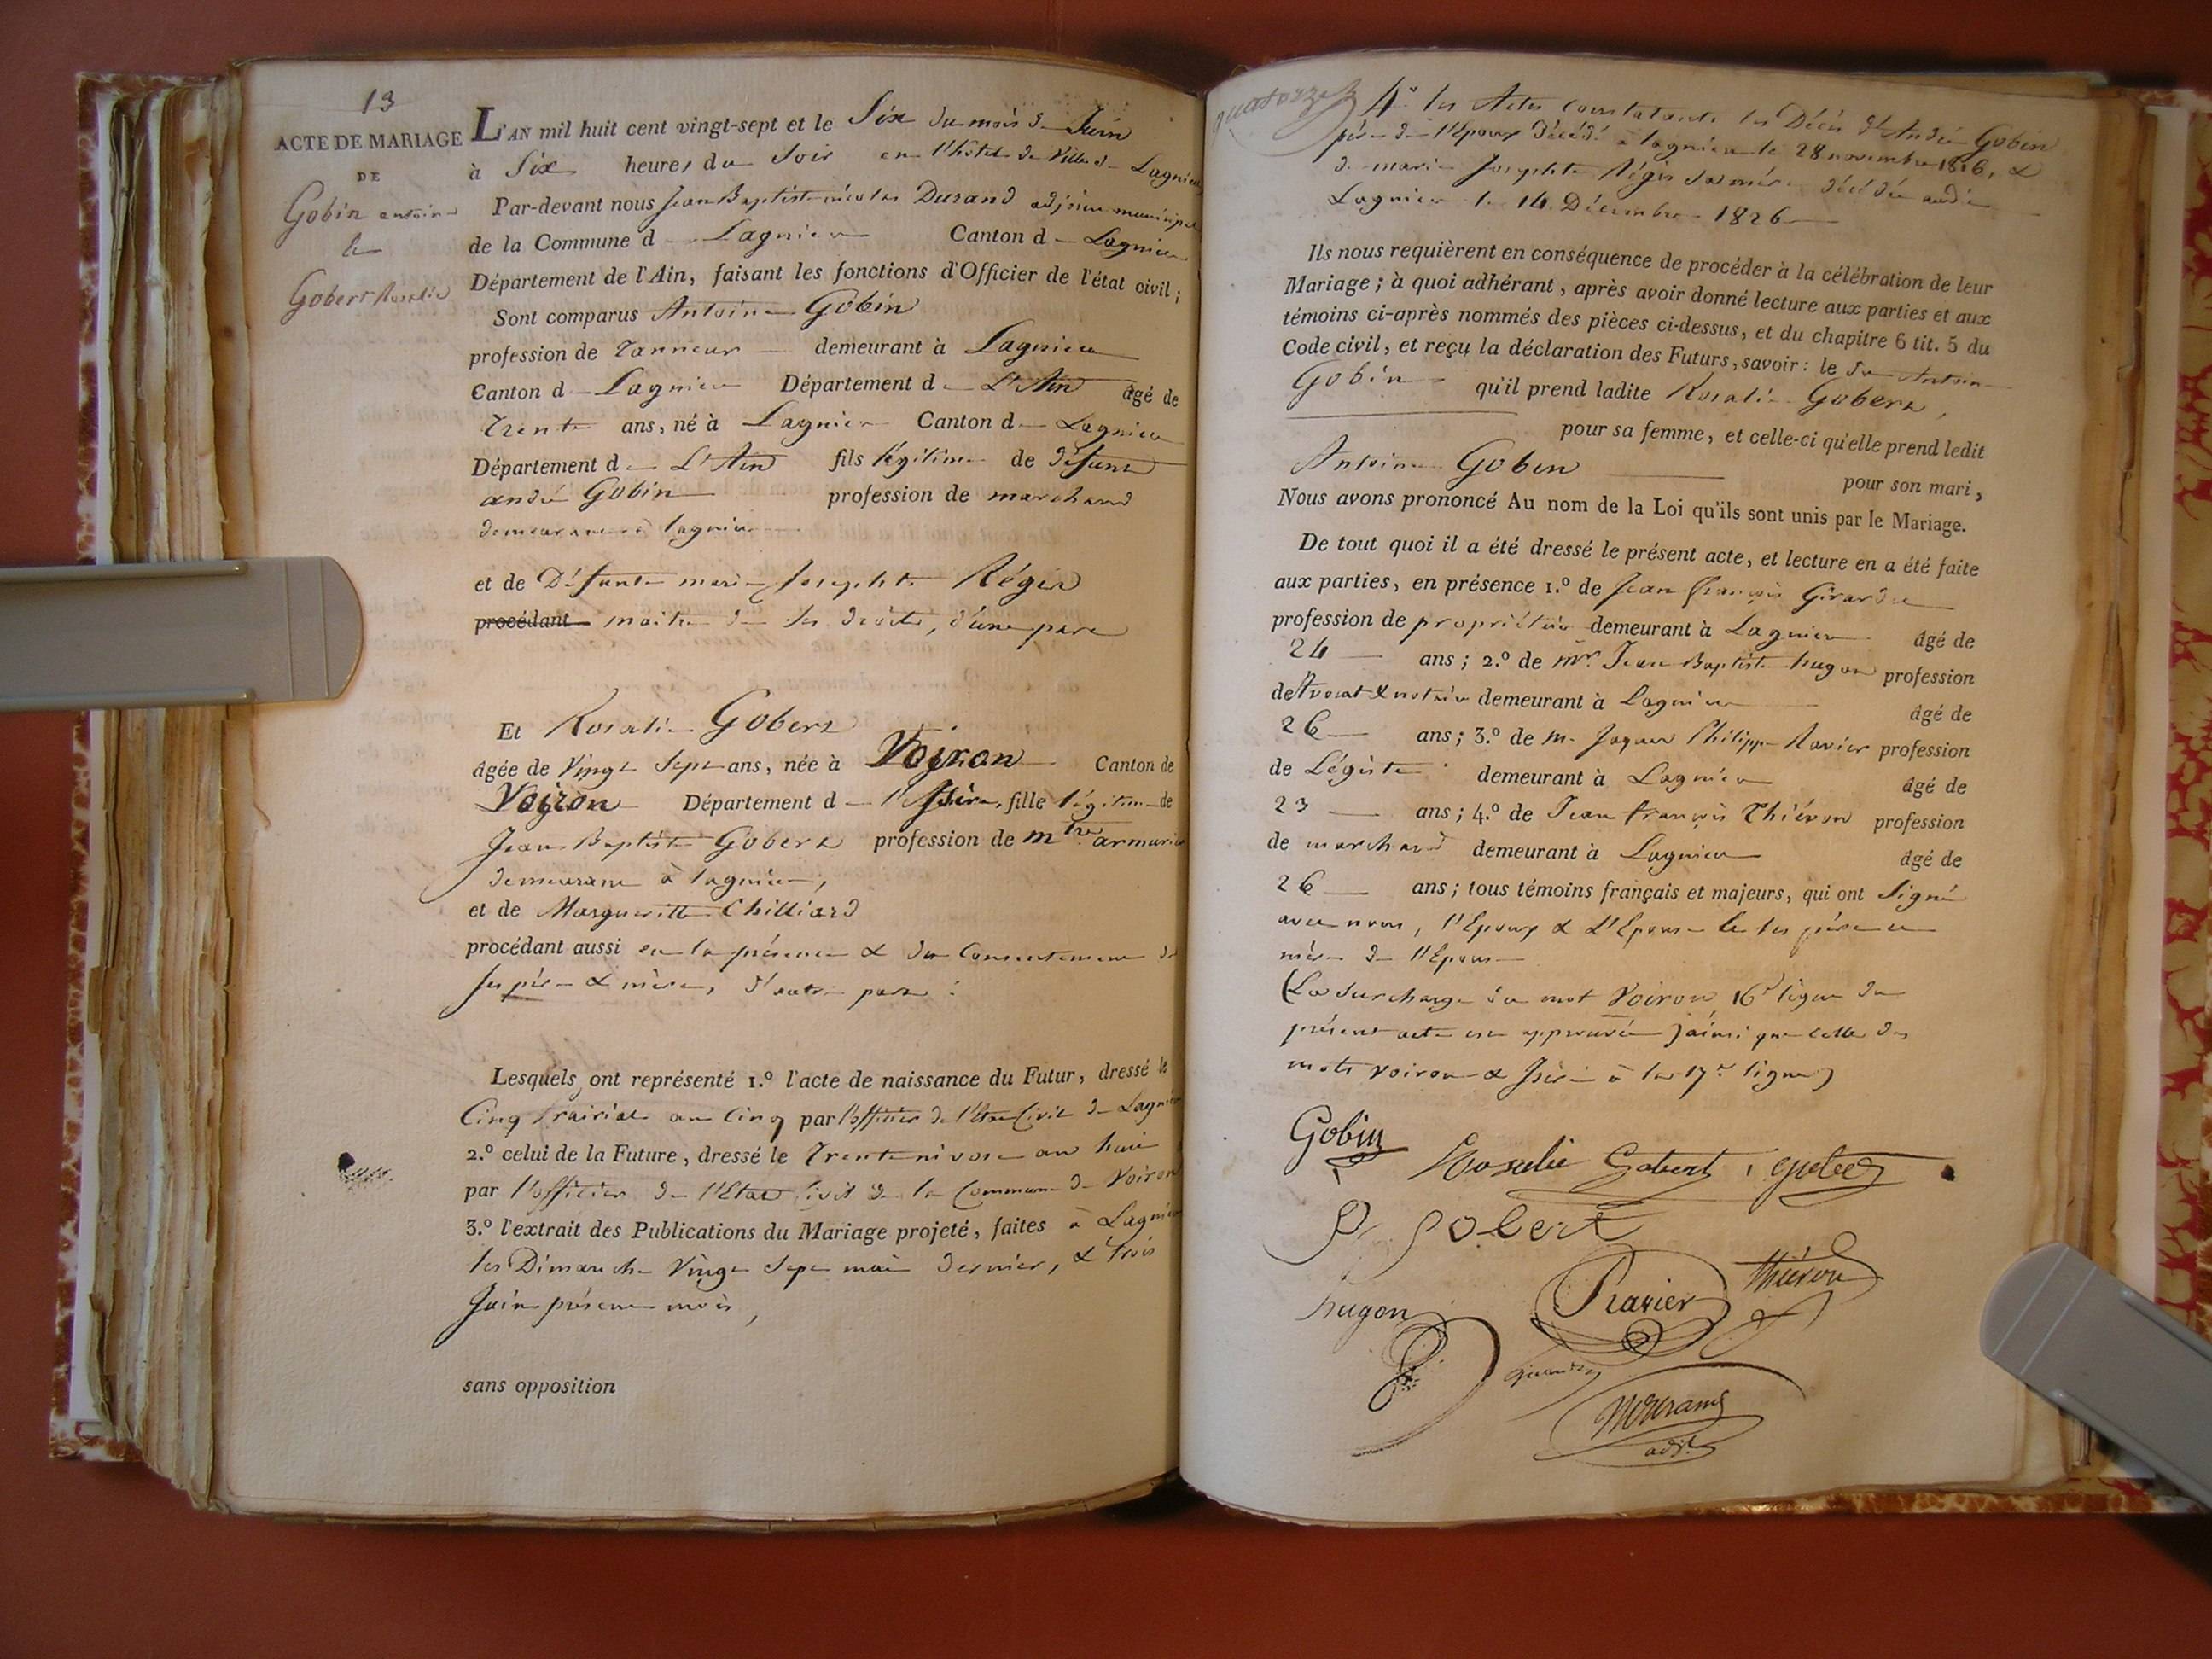 13
ACTE DE MARIAGE
DE
Gobin antoine
&
Gobert Rosalie
L'AN mil huit cent vingt-sept et le Six du mois de Juin
à Six heures du Soir en l'hôtel de Ville de Lagnieu
Par-devant nous Jean Baptiste nicolas Durand adjoint municipal
de la Commune d Lagnieu Canton d Lagnieu
Département de l'Ain, faisant les fonctions d'Officier de l'état civil;
Sont comparus Antoine Gobin
profession de Tanneur demeurant à Lagnieu
Canton d Lagnieu Département d L'Ain âgé de
Trente ans, né à Lagnieu Canton d Lagnieu
Département d L'Ain fils légitime de défunt
andré Gobin profession de marchand
demeurant à lagnieu
et de Défunte marie Josephte Régis
procédant maitre de ses droits, d'une part
Et Rosalie Gobert
âgée de Vingt Sept ans, née à Voiron Canton de
Voiron Département d l'Isère, fille légitime de
Jean Baptiste Gobert profession de mtre armurier
demeurant à lagnieu,
et de Margueritte Chilliard
procédant aussi en la présence & du Consentement de
ses père & mère, d'autre part :
Lesquels ont représenté 1.º l'acte de naissance du Futur, dressé le
Cinq prairial an Cinq par l'officier de l'Etat Civil de Lagnieu
2.º celui de la Future, dressé le Trente nivose an huit
par l'officier de l'Etat Civil de la Commune de Voiron
3.º l'extrait des Publications du Mariage projeté, faites à Lagnieu
les Dimanche Vingt Sept mai dernier, & trois
Juin présent mois,
sans opposition
quatorze
4º les Actes Constatants les Décès d'André Gobin
père de l'Epoux décédé à lagnieu le 28 novembre 1816, &
de marie Josephte Régis sa mère décédée audit
Lagnieu le 14 Décembre 1826
Ils nous requièrent en conséquence de procéder à la célébration de leur
Mariage; à quoi adhérant, après avoir donné lecture aux parties et aux
témoins ci-après nommés des pièces ci-dessus, et du chapitre 6 tit. 5 du
Code civil, et reçu la déclaration des Futurs, savoir: le Sr Antoine
Gobin qu'il prend ladite Rosalie Gobert,
pour sa femme, et celle-ci qu'elle prend ledit
Antoine Gobin pour son mari,
Nous avons prononcé Au nom de la Loi qu'ils sont unis par le Mariage.
De tout quoi il a été dressé le présent acte, et lecture en a été faite
aux parties, en présence 1.º de Jean françois Girardin
profession de propriétaire demeurant à Lagnieu âgé de
24 ans; 2.º de mr. Jean Baptiste hugon profession
de Avocat & notaire demeurant à Lagnieu âgé de
26 ans; 3.º de m. Jaques Philippe Ravier profession
de Légiste demeurant à Lagnieu âgé de
23 ans; 4.º de Jean françois Thiévon profession
de marchand demeurant à Lagnieu âgé de
26 ans; tous témoins français et majeurs, qui ont Signé
avec nous, l'Epoux & L'Epouse & les père &
mère de l'Epouse
(La surcharge du mot Voiron 16e ligne du
présent acte est approuvée) ainsi que celle des
mots voiron & Isère à la 17e ligne)
Gobin
Rosalie Gobert
gobert
hugon
Ravier
Thiévon
Durand
adjt